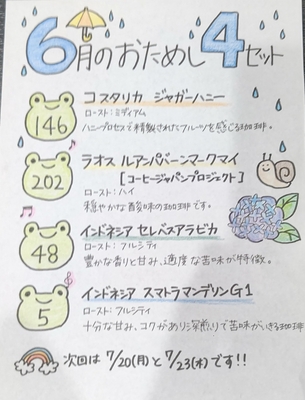 6月のおためし4セット
146
コスタリカ ジャガーハニー
ロースト:ミディアム
ハニープロセスで精製されてフルーツを感じる珈琲。
202
ラオス ルアンパバーンマークマイ
[コーヒージャパンプロジェクト]
ロースト:ハイ
穏やかな酸味の珈琲です。
48
インドネシア セレベスアラビカ
ロースト:フルシティ
豊かな香りと甘み、適度な苦味が特徴。
5
インドネシア スマトラマンデリンG1
ロースト:フルシティ
十分な甘み、コクがあり深煎りで苦味がいきる珈琲
次回は 7/20(月)と7/23(木)です!!